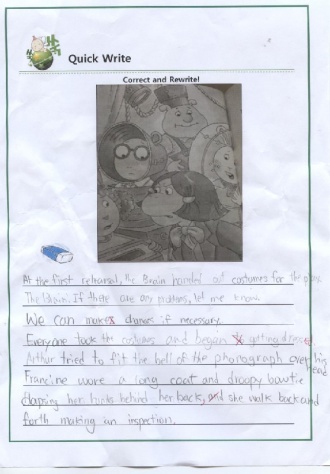 Quick Write
Correct and Rewrite!
At the first rehearsal, the Brain handed out costumes for the play.
The Brain. If there are any problems, let me know.
We can make changes if necessary.
Everyone took the costumes and began getting dressed
Arthur tried to fit the bell of the phonograph over his head
Francine wore a long coat and droopy bowtie
Clapsing her hands behind her back, and she walk back and
forth making an inspection.